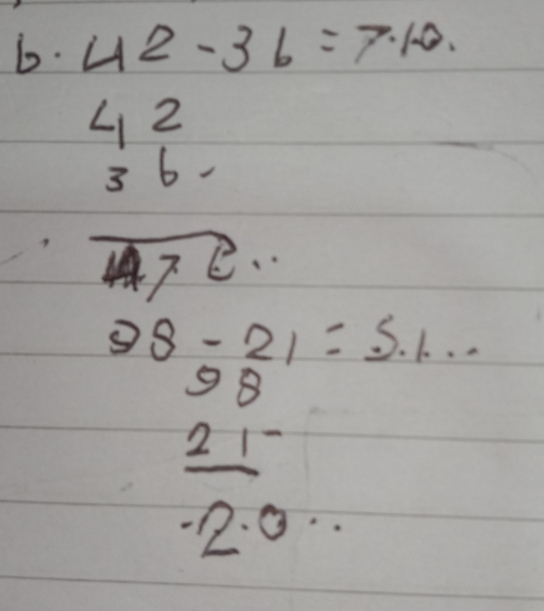 b. 42 - 36 = 7.10.
42
36 -
7 6..
98 - 21 = 5.1...
98
21 -
-2.0..